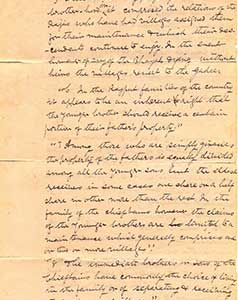 brothers comprised the relations of the
Rajas who have had villages assigned them
for their maintenance & which their des-
cendants continue to enjoy. In the event
however of any of the dying without
heirs the villages revert to the
"6. In the Rajput families of the country
it appears to be an inherent right that
the younger brother should receive a certain
portion of their father's property"
"7 Among those who are simply
the property of the fathers is equally divided
among all the younger sons but the eldest
receives in some cases one share or a half
share in other more than the rest. In the
family of the chieftains however the claims
of the younger brothers are limited to
maintenance which generally comprises one
or two or more villages"
"8 The immediate brothers or sons of the
Chieftains have commonly the choice of living
in the family or of separating & receiving